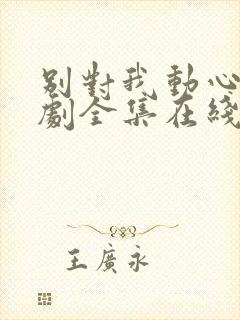 別對我動心
劇全集在綫
王廣永